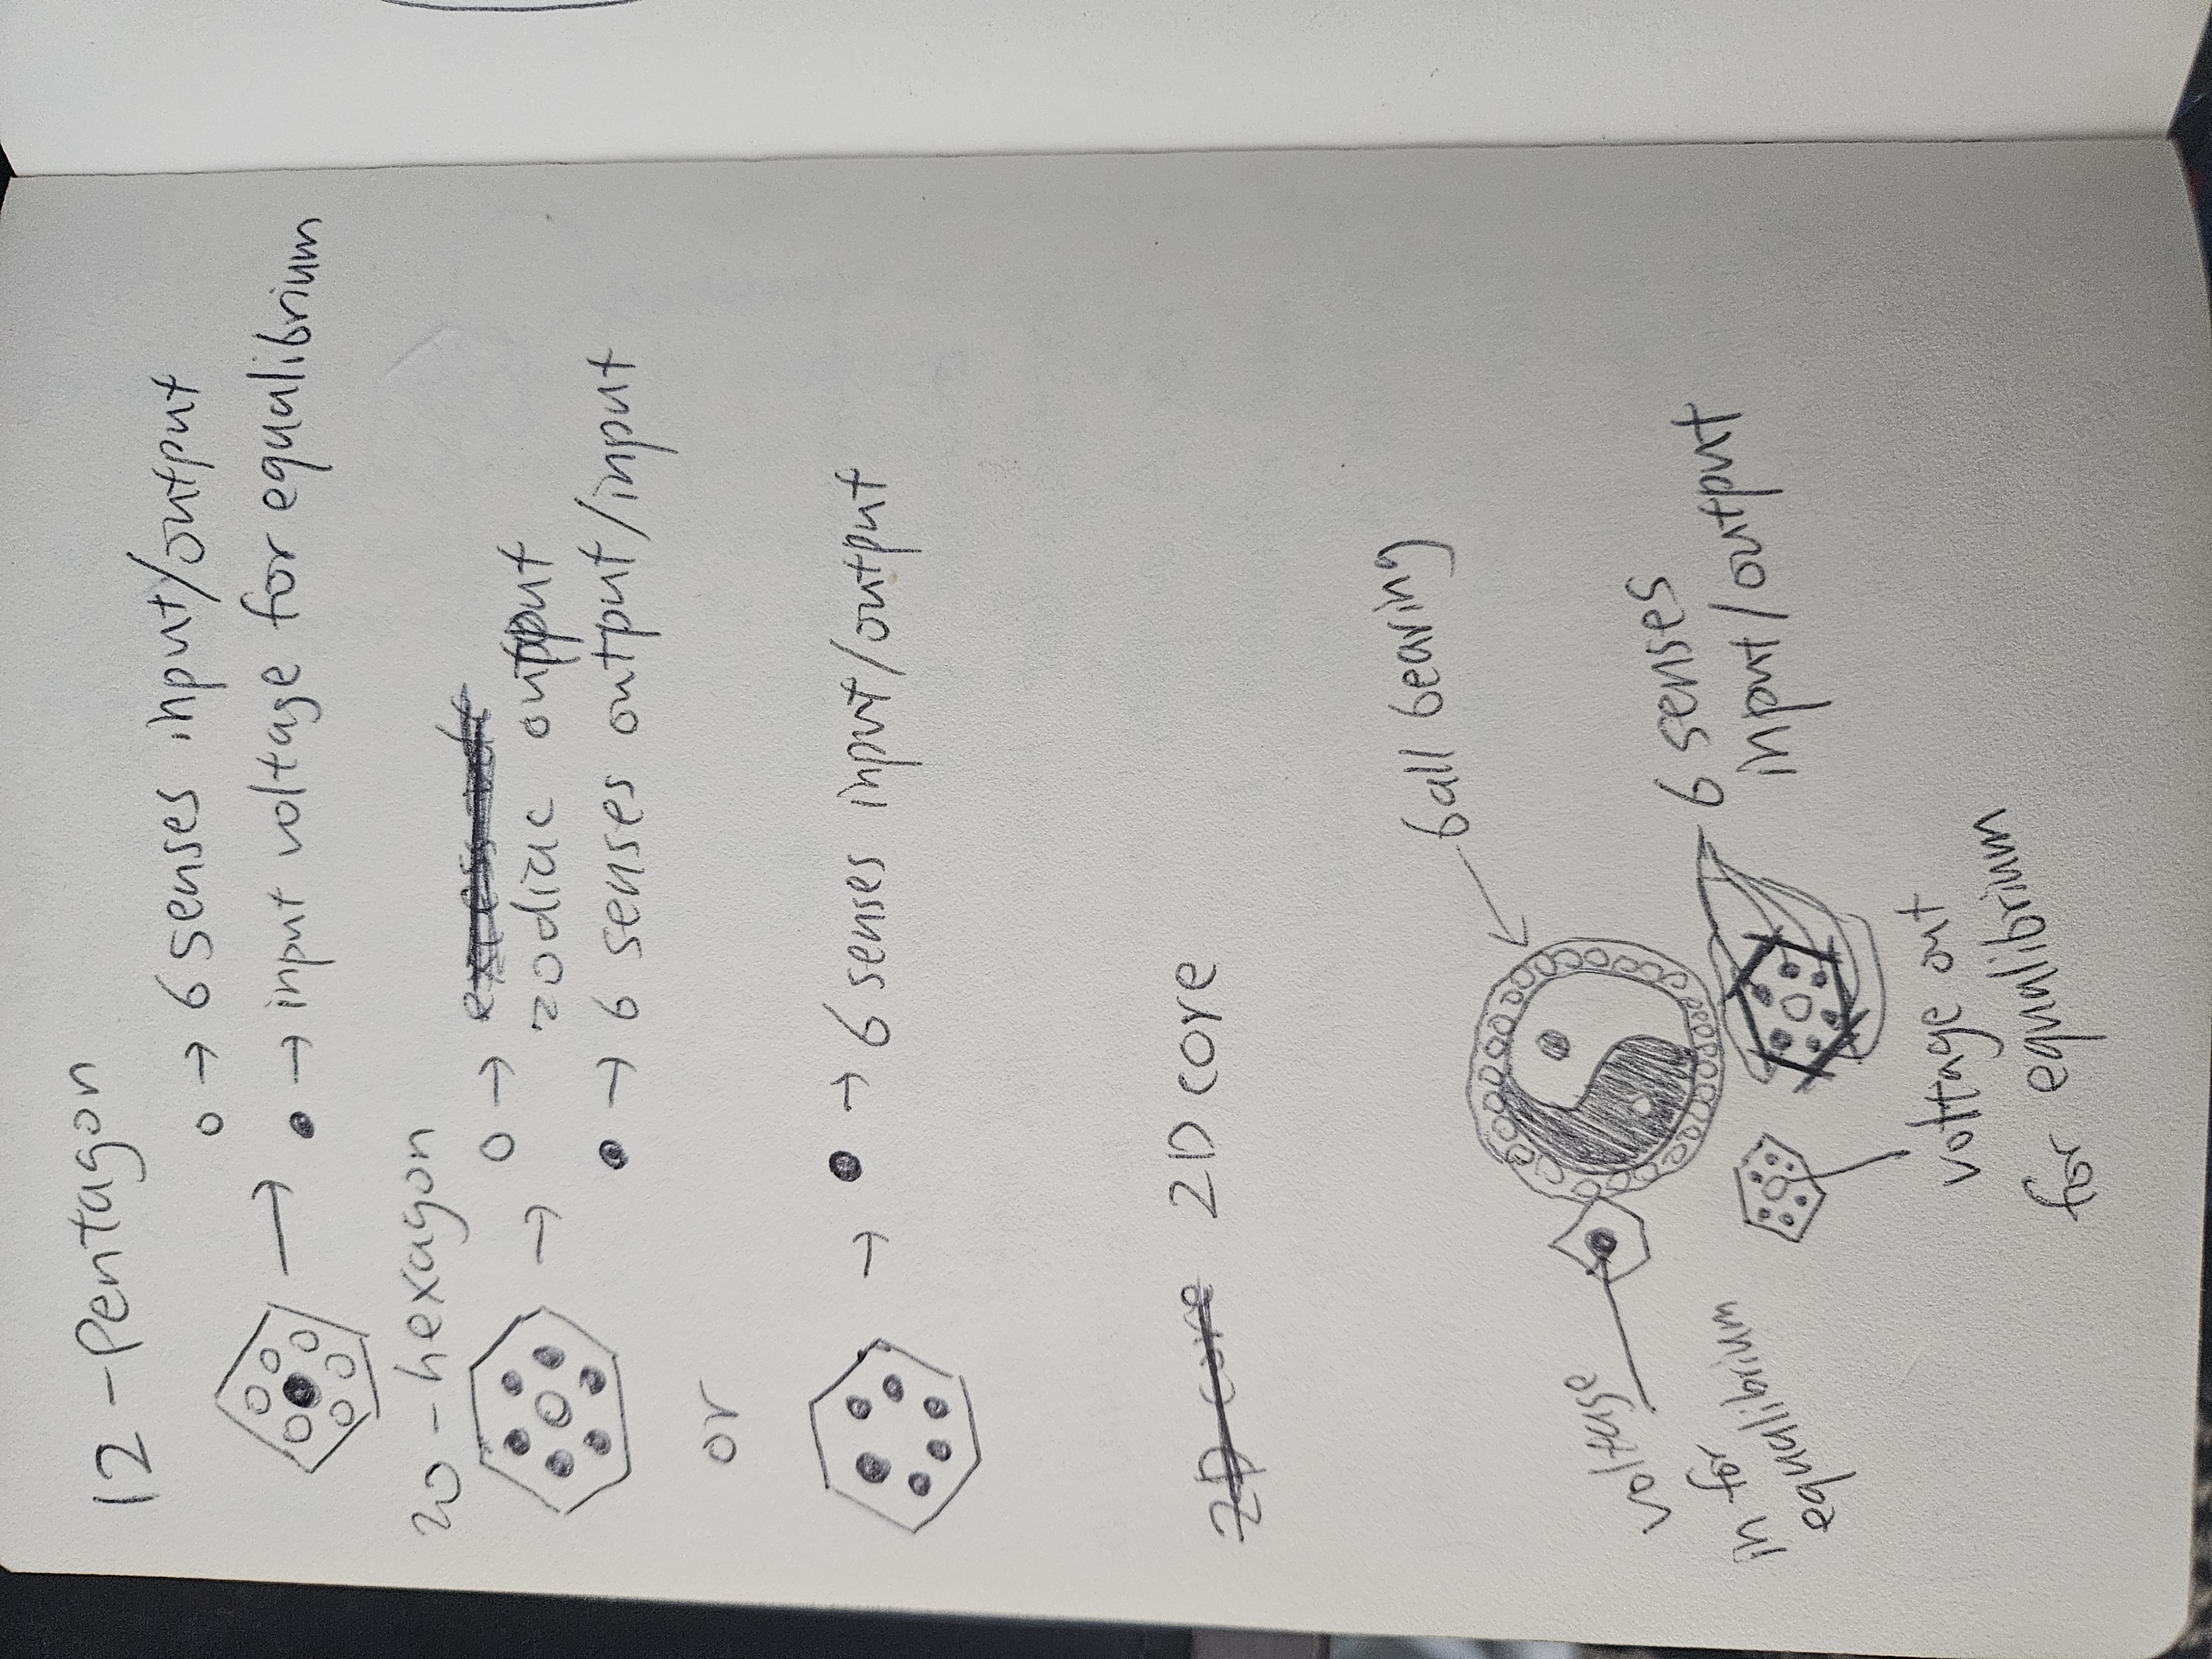 12 - Pentagon
→ 6 senses input/output
→ input voltage for equalibrium
20 - hexagon
→ excess volt
zodiac output
→ 6 senses output/input
or
→ 6 senses input/output
2D core 2D core
ball bearing
voltage
in for
equalibrium
6 senses
input/output
voltage out
for equalibrium